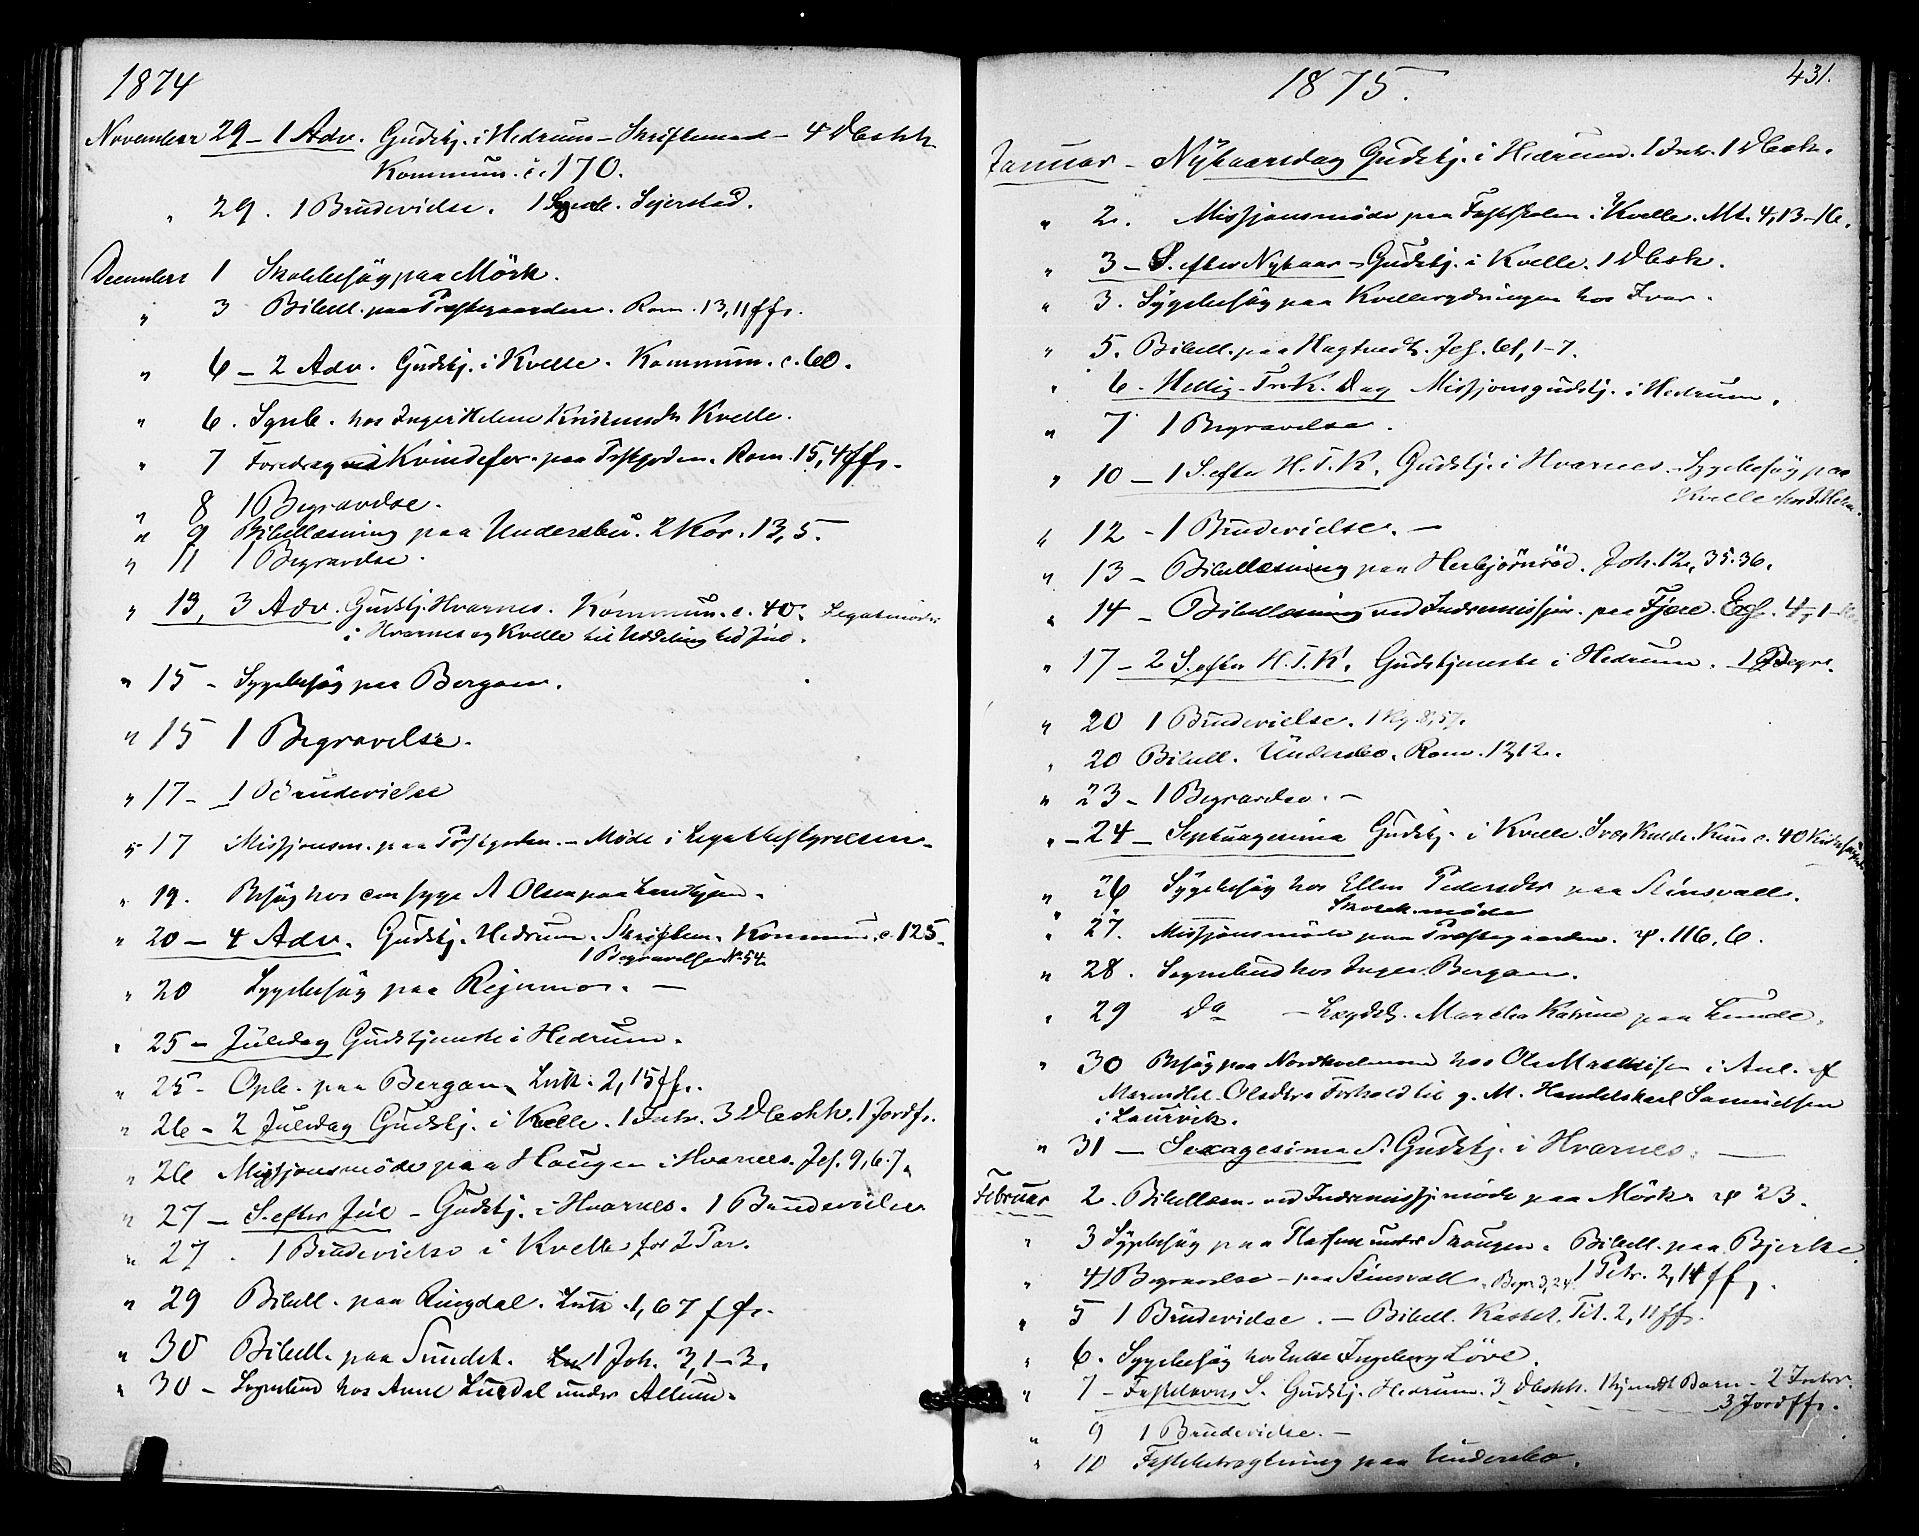 1874
November 29 - 1 Adv. Gudstj. i Hedrum - Skriftemaal - 4 Dbskh.
Kommun. c. 170.
" 29. 1 Brudevielse. 1 Sognb. Sejerstad.
December 1 Skolebesøg paa Mörk.
" 3 Bibell. paa Præstegaarden. Rom. 13, 11 ff.
" 6 - 2 Adv. Gudstj. i Kvelle. Kommun. c. 60.
" 6. Sognb. hos Inger Helene Kvelle.
" 7 Foredrag ved Kvindefor. paa Præstgården. Rom. 15, 4 ff.
" 8 1 Begravelse.
" 9 Bibellæsning paa Undersbo. 2 Kor. 13, 5.
" 11 1 Begravelse.
" 13, 3 Adv. Gudstj. Hvarnes. Kommun. c. 40. Legatmøde
i Hvarnes og Kvelle til Uddeling ved Jul.
" 15 - Sygebesøg paa Bergan.
" 15 1 Begravelse.
" 17 - 1 Brudevielse
" 17 Missjonsm. paa Præstgården. - Møde i Legatbestyrelsen.
" 19. Besøg hos den syge A Olsen paa
" 20 - 4 Adv. Gudstj. Hedrum. Skriftem. Kommun. c. 125.
1 Begravelse No 54.
" 20 Sygebesøg paa -
" 25 - Juledag Gudstjeneste i Hedrum.
" 25 - Opb. paa Bergan. Luk. 2, 15 ff.
" 26 - 2 Juledag Gudstj. i Kvelle. 1 Intr. 3 Dbskh. 1 Jordf.
" 26 Missjonsmøde paa Haugen i Hvarnes. Jes. 9, 6.7.
" 27 - S. efter Jul - Gudstj. i Hvarnes. 1 Brudevielse
" 27. 1 Brudevielse i Kvelle for 2 Par.
" 29 Bibell. paa Ringdal. Luk. 1, 67 ff.
" 30 Bibell. paa Sundet. 1 Joh. 3, 1-3.
" 30 - Sognebud hos Anne under Allum.
431.
1875.
Januar - Nytaarsdag Gudstj. i Hedrum. 1 Intr. 1 Dbsh.
" 2. Missjonsmøde paa Fastskolen i Kvelle. Mt. 4, 13-16.
" 3 - S. efter Nytaar - Gudstj. i Kvelle. 1 Dbsh.
" 3. Sygebesøg paa Kvellerydningen hos Ivar.
" 5. Bibell. paa Hagtvedt. Jes. 61, 1-7.
" 6. Hellig-Tre-K. Dag Missjonsgudstj. i Hedrum.
" 7 1 Begravelse.
" 10 - 1 S. efter H. T. K. Gudstj. i Hvarnes. - Sygebesøg paa
Kvelle hos I. Helene
" 12 - 1 Brudevielse. -
" 13 - Bibellæsning paa Herbjörnröd. Joh. 12, 35.36.
" 14 - Bibellæsning ved Indremissjon. paa Fjære. Eph. 4, 1-
" 17 - 2 S. efter H. T. K. Gudstjeneste i Hedrum. 1 Begr.
" 20 1 Brudevielse. 1 Kg. 8, 57.
" 20 Bibell. Undersbo. Rom. 12, 12.
" 23 - 1 Begravelse. -
" - 24 - Septuagesima Gudstj. i Kvelle. Svær Kulde. Kun c. 40
" 26 Sygebesøg hos Ellen Pedersdtr paa Stinsvall.
" Skolek.møde
" 27. Missjonsmøde paa Præstegaarden. ψ. 116, 6.
" 28. Sognebud hos Inger Bergan.
" 29 Do - Lægdsl. Marthe Katrine paa Lunde.
" 30 Besøg paa Nordkvelmoen hos Ole Mathisen i Anl. af
Olsdtrs Forhold til g. M. Handelskarl Samuelsen
i Laurvik.
" 31 - Sexagesima S. Gudstj. i Hvarnes. -
Februar 2. Bibellæsn. ved Indremissjonsmøde paa Mörk. ψ 23.
" 3 Sygebesøg paa Pladsen under Skougen. Bibell. paa Bjerke
" 4 1 Begravelse - paa Stinsvall. Begr. 3, 24. 1 Petr. 2, 14 ff.
" 5 1 Brudevielse. - Bibell. Kastet. Tit. 2, 11 ff.
" 6. Sygebesøg hos Enke Ingeborg Löve.
" 7 - Fastelavns S. Gudstj. Hedrum. 3 Dbskh. 1 hjemdt Barn - 2 Intr.
3 Jordff.
" 9 1 Brudevielse. -
" 10 Fastebetragtning paa Undersbo.